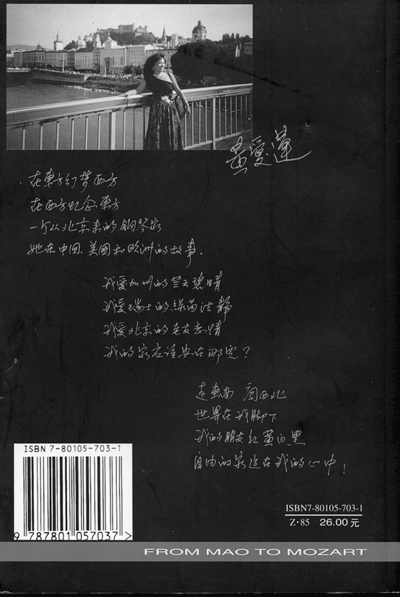 黄愛蓮
在東方幻夢西方
在西方紀念東方
一个从北京来的鋼琴家
她在中国、美國和欧洲的故事.
我爱加州的
我爱瑞士的绿茵洁静
我爱北京的亲友
我的家应该安在那里？
走東南 闯西北
世界在我脚下
我的朋友红黄白黑
自由的家运在我的心中！
ISBN 7-80105-703-1
9 787801 057037 >
ISBN7-80105-703-1
Z·85 26.00 元
FROM MAO TO MOZART